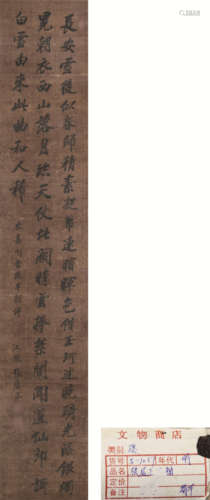 長安雪後似春歸積素凝華連曙暉色借玉珂迷曉騎光添銀燭
晃朝衣西山落月臨天仗北闕晴雲捧禁闈聞道仙郎歌
白雪由來此曲和人稀
文物商店
类别
货号 年代 明
品名 轴
定价
备注